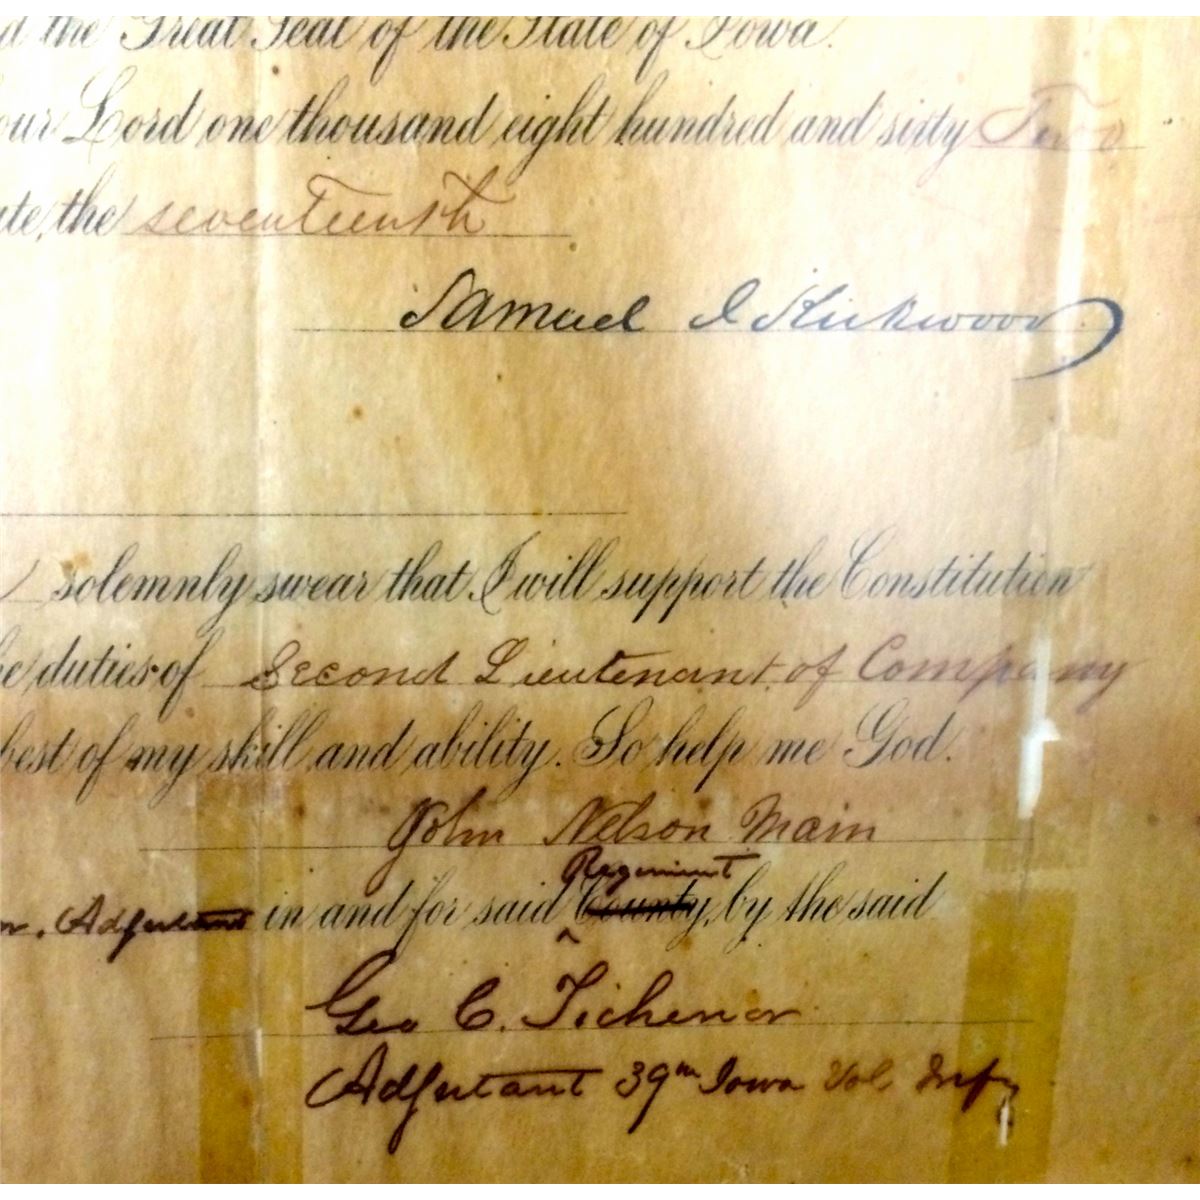 d the Great Seal of the State of Iowa.
our Lord one thousand eight hundred and sixty Two
ate, the seventeenth
Samuel J Kirkwood
solemnly swear that I will support the Constitution
he duties of Second Lieutenant of Company
best of my skill and ability. So help me God.
John Nelson Main
Regiment
or. Adjutant in and for said County, by the said
Geo C. Tichenor
Adjutant 39th Iowa Vol. Infy